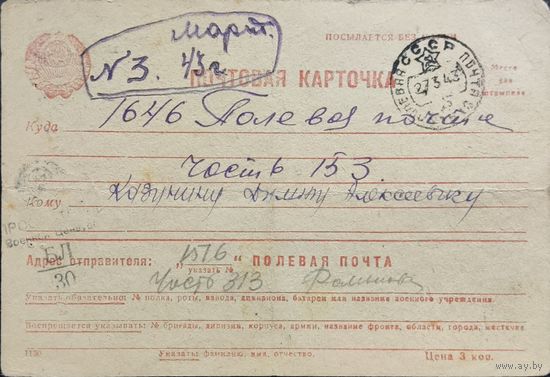 ПОСЫЛАЕТСЯ БЕЗ
Март.
N 3. 43 г
ПОЧТОВАЯ КАРТОЧКА
СССР
ПОЛЕВАЯ ПОЧТА
27 3 43
Место для штемпеля
Куда 1646 Полевая почта
часть 153.
Кому
Военной Цензурой
БЛ
30
Адрес отправителя: „1576 “ ПОЛЕВАЯ ПОЧТА
указать №
Часть 313
Указать обязательно: № полка, роты, взвода, дивизиона, батареи или название военного учреждения.
Воспрещается указывать: № бригады, дивизии, корпуса, армии, название фронта, области, города, местечка
Указать: фамилию, имя, отчество.
Цена 3 коп.
www.ay.by